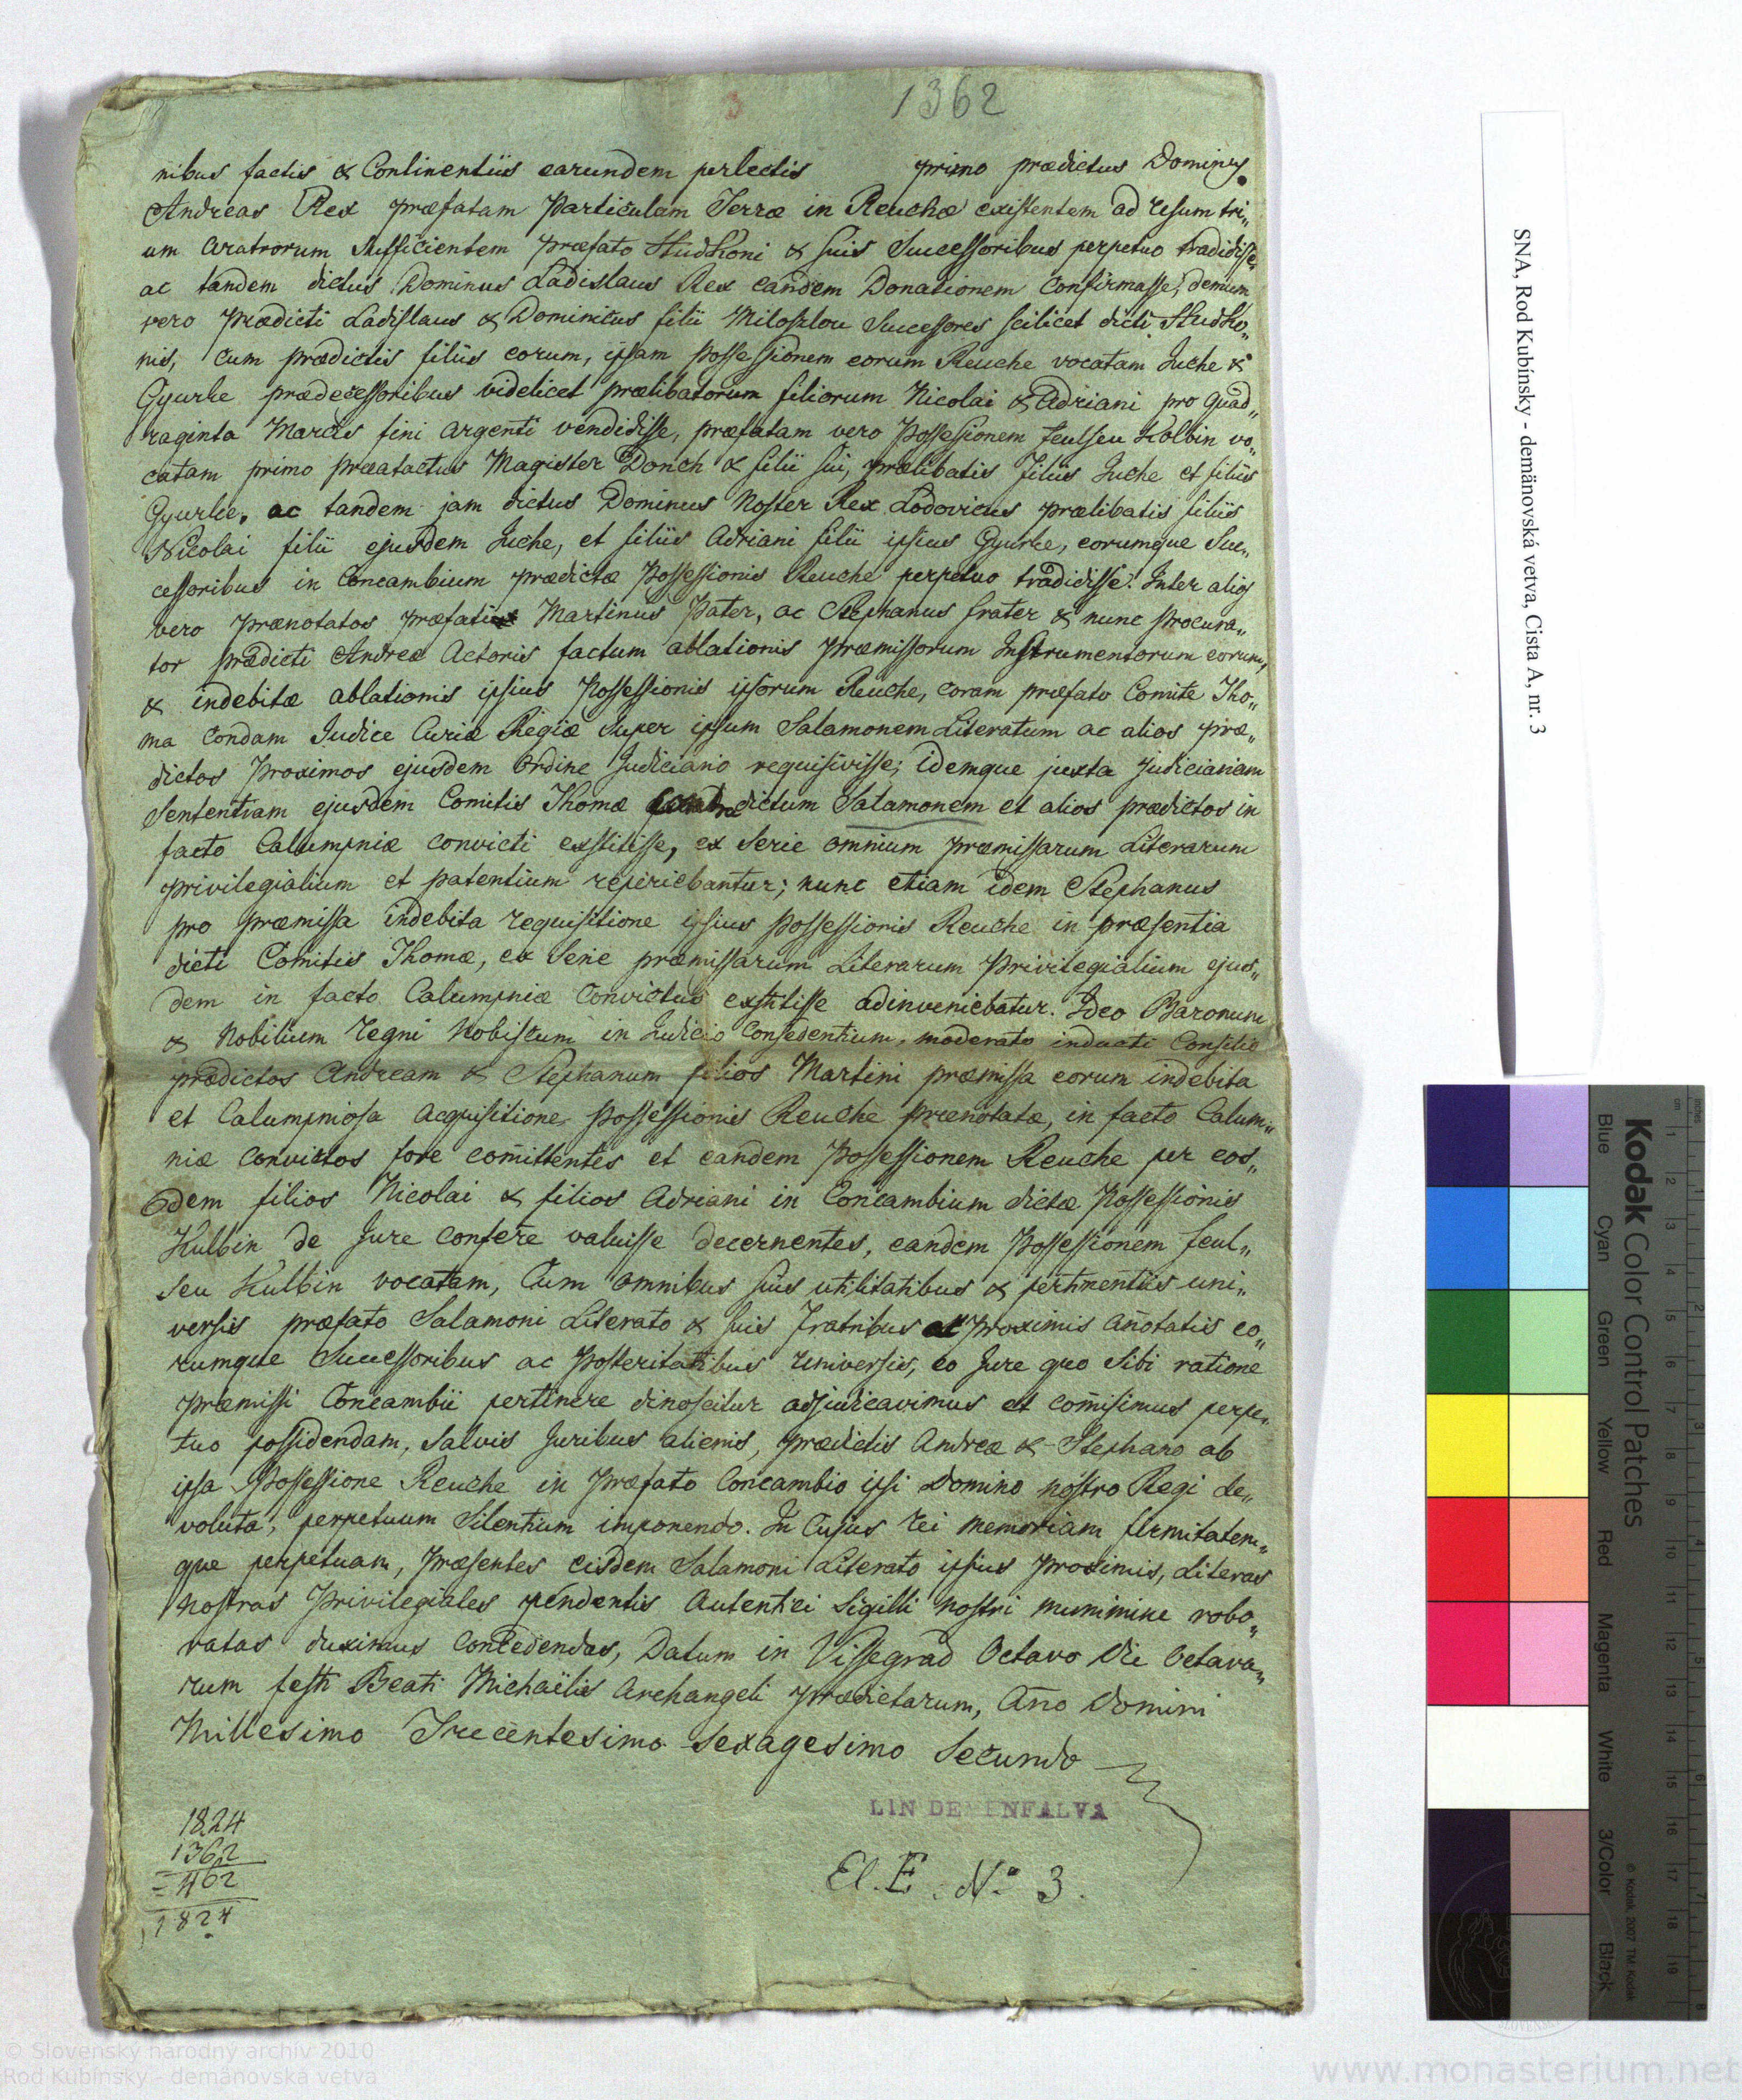 3
1362
nibus factis & Continentiis earundem perlectis primo prædictus Dominus
Andreas Rex præfatam Particulam Terræ in Reuche existentem ad Usum tri„
um Aratrorum Sufficientem præfato Hudkoni & suis Successoribus perpetuo tradidisse,
ac tandem dictus Dominus Ladislaus Rex eandem Donationem Confirmasse, demum
vero prædicti Ladislaus & Dominicus filii Miloszlou Successores scilicet dicti Hudko„
nis, cum prædictis filiis eorum, ipsam possessionem eorum Reuche vocatam Juche &
Gyurke prædecessoribus videlicet prælibatorum filiorum Nicolai & Adriani pro quad„
raginta Marcis fini Argenti vendidisse, præfatam vero Possessionem feulseu Kolbin vo„
catam primo præatactus Magister Donch & filii sui, prælibatis filiis Juche et filiis
Gyurke, ac tandem jam dictus Dominus Noster Rex Lodovicus prælibatis filiis
Nicolai filii ejusdem Juche, et filiis Adriani filii ipsius Gyurke, eorumque Suc„
cessoribus in Concambium prædictæ Possessionis Reuche perpetuo tradidisse. Inter alios
vero prænotatos præfati Martinus Pater, ac Stephanus frater & nunc procura„
tor prædicti Andreæ Actoris factum ablationis præmissorum Instrumentorum eorum,
& indebitæ ablationis ipsius Possessionis ipsorum Reuche, coram præfato Comite Tho„
ma Condam Judice Curiæ Regiæ super ipsum Salamonem Literatum ac alios præ„
dictos Proximos ejusdem Ordine Judiciario requisivisse; idemque juxta Judiciariam
Sententiam ejusdem Comitis Thomæ dictum Salamonem et alios prædictos in
facto Calumpniæ convicti exstitisse, ex serie omnium præmissarum Literarum
privilegialium et patentium reperiebantur; nunc etiam idem Stephanus
pro præmissa indebita requisitione ipsius possessionis Reuche in præsentia
dicti Comitis Thomæ, ex Serie præmissarum Literarum Privilegialium ejus„
dem in facto Calumpniæ Convictus exstitisse adinveniebatur. Ideo Baronum
& Nobilium Regni Nobiscum in Judicio Consedentium, moderato inducti Consilio
prædictos Andream & Stephanum filios Martini præmissa eorum indebita
et Calumpniosa Acquisitione possessionis Reuche prænotatæ, in facto Calum„
niæ Convictos fore comittentes et eandem Possessionem Reuche per eos„
dem filios Nicolai & filios Adriani in Concambium dictæ Possessionis
Kulbin de Jure Conferre valuisse decernentes, eandem Possessionem feul„
seu Kulbin vocatam, Cum omnibus suis utilitatibus & pertinentiis uni„
versis præfato Salamoni Literato & suis Fratribus ac proximis Anotatis eo„
rumque Successoribus ac Posteritatibus Universis, eo Jure quo Sibi ratione
præmissi Concambii pertinere dinoscitur adjudicavimus et comisimus perpe„
tuo possidendam, Salvis Juribus alienis, prædictis Andreæ & Stephano ab
ipsa Possessione Reuche in præfato Concambio ipsi Domino nostro Regi de„
voluta, perpetuum Silentium imponendo. In Cujus rei memoriam firmitatem„
que perpetuam, præsentes eisdem Salamoni Literato ipsius proximis, Literas
Nostras Privilegiales pendentis Autentici Sigilli nostri munimine robo„
ratas duximus Concedendas, Datum in Vissegrad Octavo die Octava„
rum festi Beati Michaëlis Archangeli prædictarum, Año Domini
Millesimo Trecentesimo Sexagesimo Secundo
LIN DE ENFALVA
El. E. No 3.
1824
1362
= 462
1824
SNA, Rod Kubínsky - demänovská vetva, Cista A, nr. 3
Kodak Color Control Patches
Blue Cyan Green Yellow Red Magenta White 3/Color Black
© Kodak, 2007 TM: Kodak
© Slovenský národný archív 2010
Rod Kubínsky - demänovská vetva
www.monasterium.net